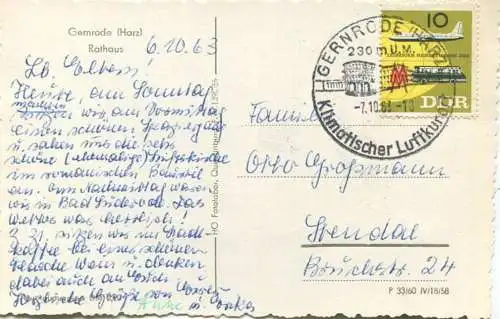 Gernrode (Harz)
Rathaus
6.10.63
Lb. Eltern!
Heute, am Sonntag
machten wir am Vormittag
einen schönen Spaziergang
u. sahen uns die sehr
schöne (ehemalige) Stiftskirche
im romanischen Baustil
an. Am Nachmittag waren
wir in Bad Suderode. Das
Wetter war herrlich!
Z. Zt. sitzen wir im
kaffee bei einer schönen
Tasse u. denken
dabei auch an Euch.
Herzliche Grüße von Euren
Anke u.
HO Fotolabor, Quedlinburg
GERNRODE (HARZ)
230 m ü. M.
-7.10.63-
Klimatischer Luftkurort
10
DDR
Familie
Otto Großmann
Stendal
Bruchstr. 24
P 33/60 IV/18/58